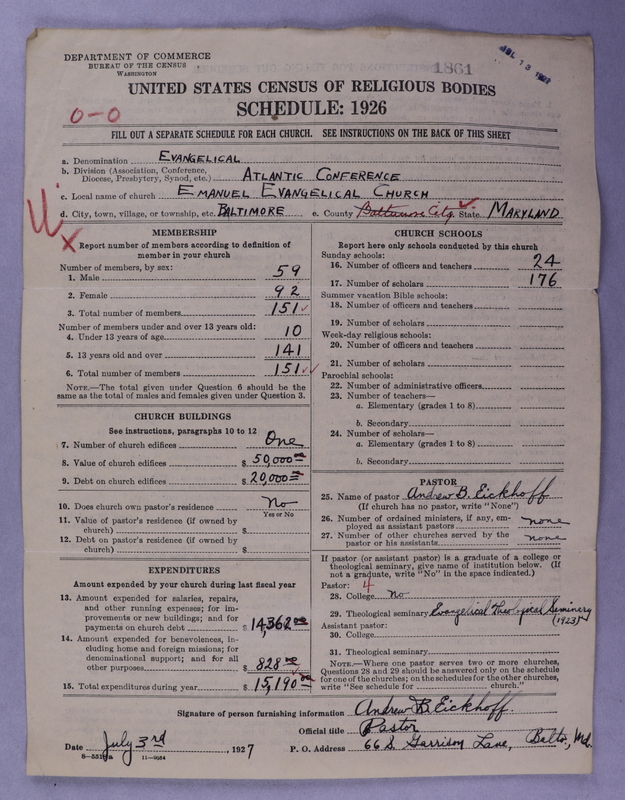 DEPARTMENT OF COMMERCE
BUREAU OF THE CENSUS
WASHINGTON
1861
JUL 13 1927
UNITED STATES CENSUS OF RELIGIOUS BODIES
SCHEDULE: 1926
0-0
FILL OUT A SEPARATE SCHEDULE FOR EACH CHURCH. SEE INSTRUCTIONS ON THE BACK OF THIS SHEET
a. Denomination EVANGELICAL
b. Division (Association, Conference, Diocese, Presbytery, Synod, etc.) ATLANTIC CONFERENCE
c. Local name of church EMANUEL EVANGELICAL CHURCH
d. City, town, village, or township, etc. BALTIMORE e. County Baltimore City State MARYLAND
MEMBERSHIP
Report number of members according to definition of
member in your church
Number of members, by sex:
1. Male 59
2. Female 92
3. Total number of members 151
Number of members under and over 13 years old:
4. Under 13 years of age 10
5. 13 years old and over 141
6. Total number of members 151
NOTE.—The total given under Question 6 should be the
same as the total of males and females given under Question 3.
CHURCH BUILDINGS
See instructions, paragraphs 10 to 12
7. Number of church edifices One
8. Value of church edifices $ 50,000 00
9. Debt on church edifices $ 20,000 00
10. Does church own pastor's residence No
Yes or No
11. Value of pastor's residence (if owned by
church) $
12. Debt on pastor's residence (if owned by
church) $
EXPENDITURES
Amount expended by your church during last fiscal year
13. Amount expended for salaries, repairs,
and other running expenses; for im-
provements or new buildings; and for
payments on church debt $ 14,362 00
14. Amount expended for benevolences, in-
cluding home and foreign missions; for
denominational support; and for all
other purposes $ 828 00
15. Total expenditures during year $ 15,190 00
CHURCH SCHOOLS
Report here only schools conducted by this church
Sunday schools:
16. Number of officers and teachers 24
17. Number of scholars 176
Summer vacation Bible schools:
18. Number of officers and teachers
19. Number of scholars
Week-day religious schools:
20. Number of officers and teachers
21. Number of scholars
Parochial schools:
22. Number of administrative officers
23. Number of teachers—
a. Elementary (grades 1 to 8)
b. Secondary
24. Number of scholars—
a. Elementary (grades 1 to 8)
b. Secondary
PASTOR
25. Name of pastor Andrew B. Eickhoff
(If church has no pastor, write "None")
26. Number of ordained ministers, if any, em-
ployed as assistant pastors none
27. Number of other churches served by the
pastor or his assistants none
If pastor (or assistant pastor) is a graduate of a college or
theological seminary, give name of institution below. (If
not a graduate, write "No" in the space indicated.)
Pastor: 4
28. College No
29. Theological seminary Evangelical Theological Seminary
(1923)
Assistant pastor:
30. College
31. Theological seminary
NOTE.—Where one pastor serves two or more churches,
Questions 28 and 29 should be answered only on the schedule
for one of the churches; on the schedules for the other churches,
write "See schedule for church."
Signature of person furnishing information Andrew B. Eickhoff
Official title Pastor
Date July 3rd, 1927 P. O. Address 66 S. Garrison Lane, Balto., Md.
11—9254